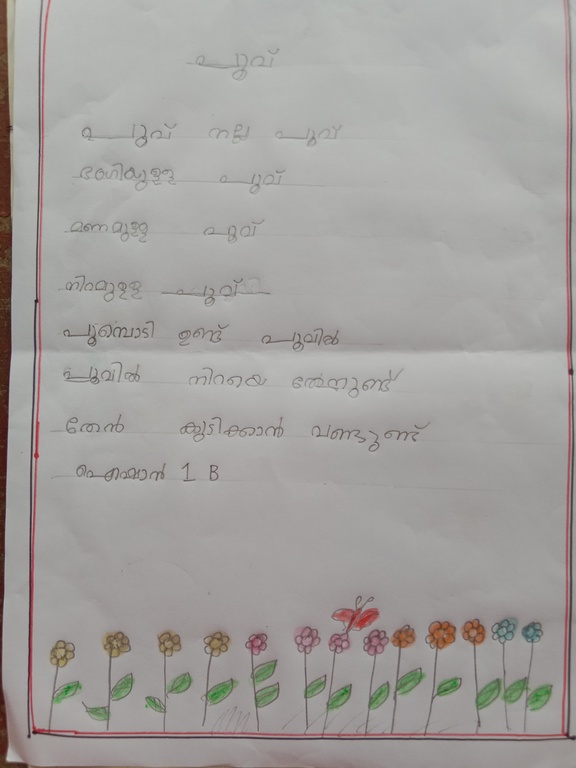 പൂവ്
പൂവ് നല്ല പൂവ്
ഭംഗിയുള്ള പൂവ്
മണമുള്ള പൂവ്
നിറമുള്ള പൂവ്
പൂമ്പൊടി ഉണ്ട് പൂവിൽ
പൂവിൽ നിറയെ തേനുണ്ട്
തേൻ കുടിക്കാൻ വണ്ടുണ്ട്
1 B